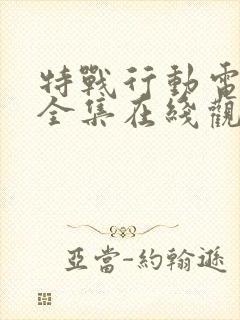 特戰行動電
全集在綫觀
亞當-約翰遜